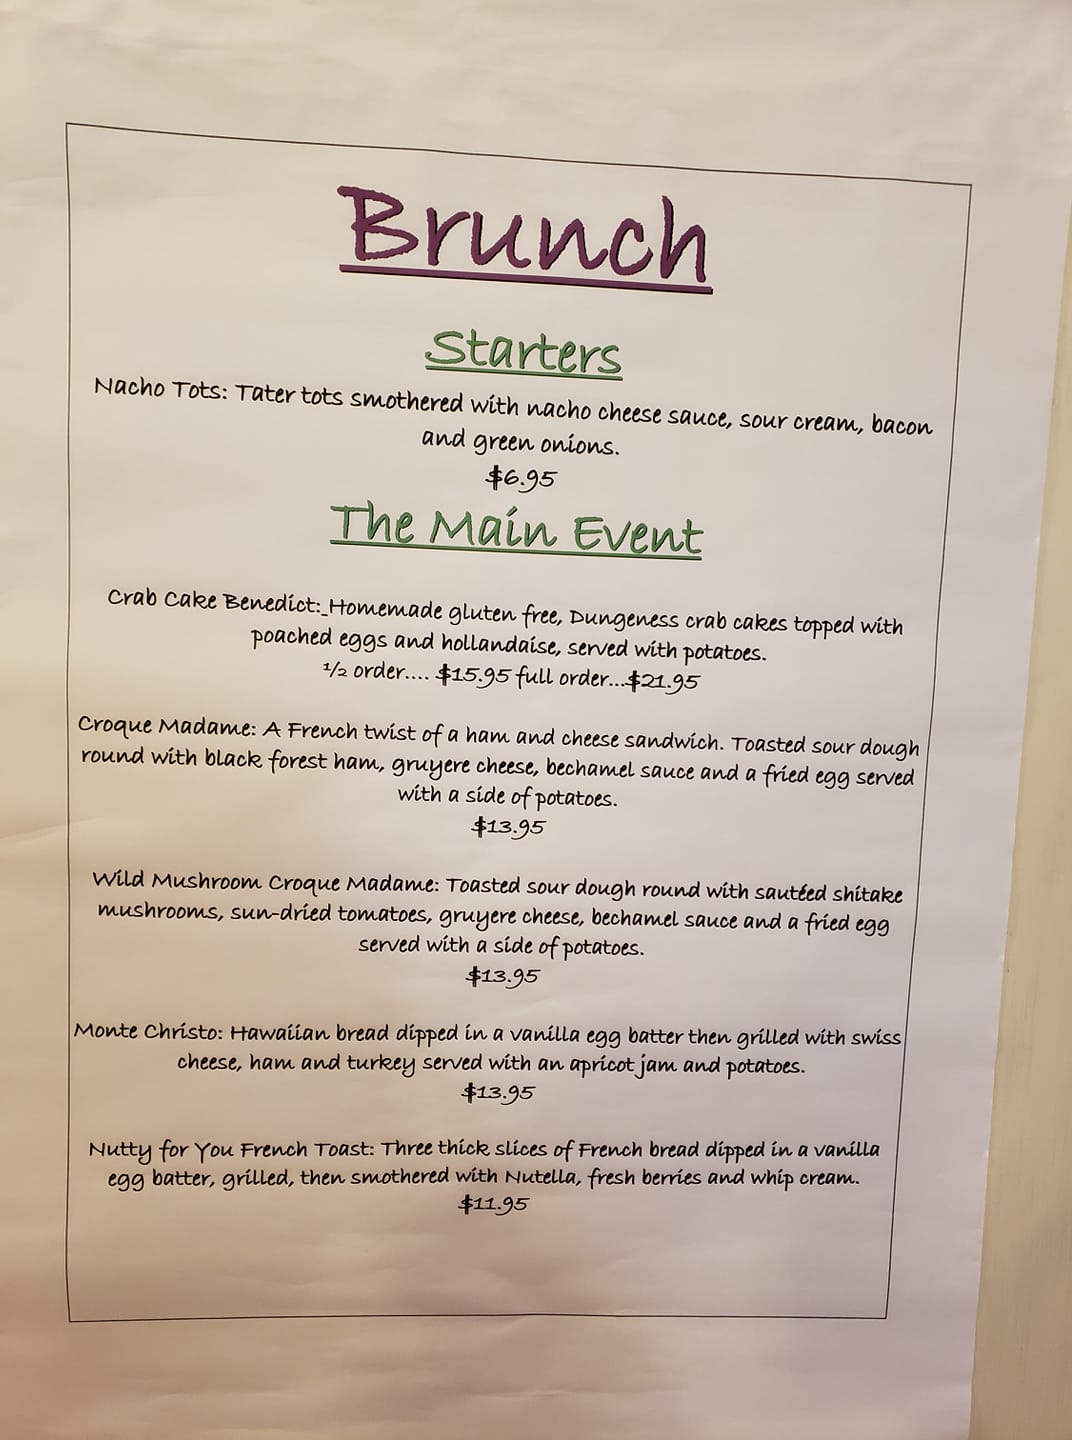 Brunch
Starters
Nacho Tots: Tater tots smothered with nacho cheese sauce, sour cream, bacon
and green onions.
$6.95
The Main Event
Crab Cake Benedict: Homemade gluten free, Dungeness crab cakes topped with
poached eggs and hollandaise, served with potatoes.
½ order.... $15.95 full order...$21.95
Croque Madame: A French twist of a ham and cheese sandwich. Toasted sour dough
round with black forest ham, gruyere cheese, bechamel sauce and a fried egg served
with a side of potatoes.
$13.95
Wild Mushroom Croque Madame: Toasted sour dough round with sautéed shitake
mushrooms, sun-dried tomatoes, gruyere cheese, bechamel sauce and a fried egg
served with a side of potatoes.
$13.95
Monte Christo: Hawaiian bread dipped in a vanilla egg batter then grilled with swiss
cheese, ham and turkey served with an apricot jam and potatoes.
$13.95
Nutty for You French Toast: Three thick slices of French bread dipped in a vanilla
egg batter, grilled, then smothered with Nutella, fresh berries and whip cream.
$11.95